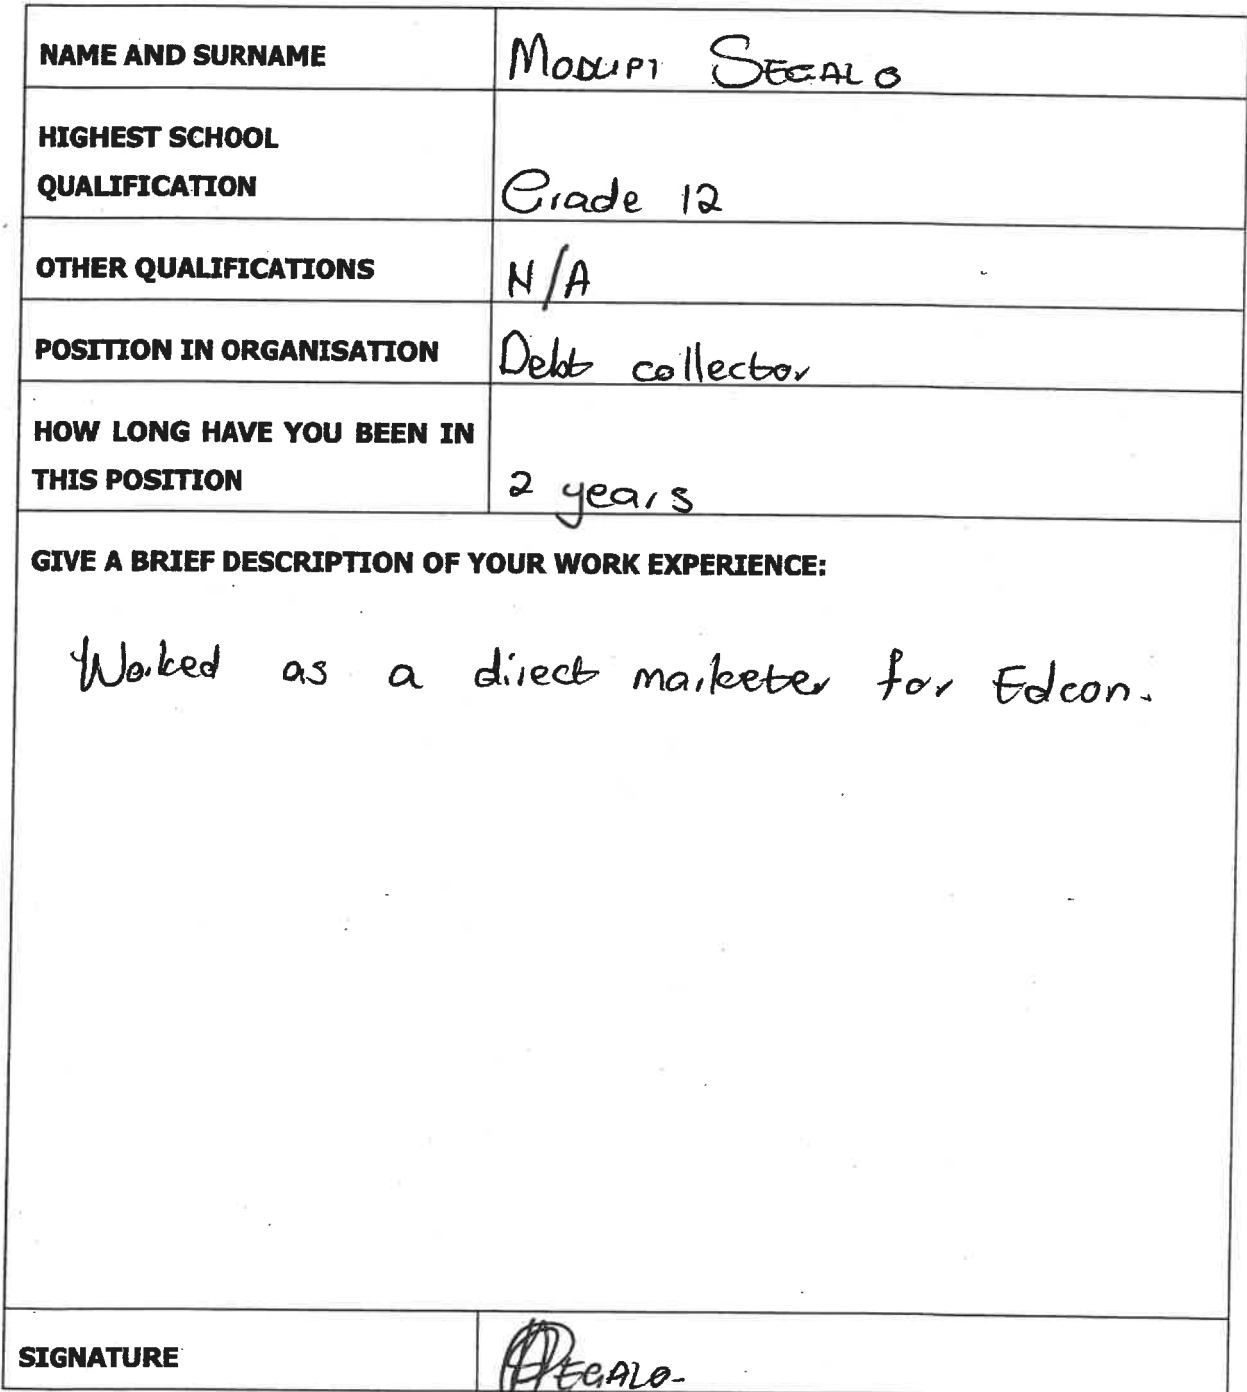 NAME AND SURNAME Modupi SEGALO
HIGHEST SCHOOL
QUALIFICATION Grade 12
OTHER QUALIFICATIONS N/A
POSITION IN ORGANISATION Debt collector
HOW LONG HAVE YOU BEEN IN
THIS POSITION 2 years
GIVE A BRIEF DESCRIPTION OF YOUR WORK EXPERIENCE:
Worked as a direct marketer for Edcon.
SIGNATURE SEGALO